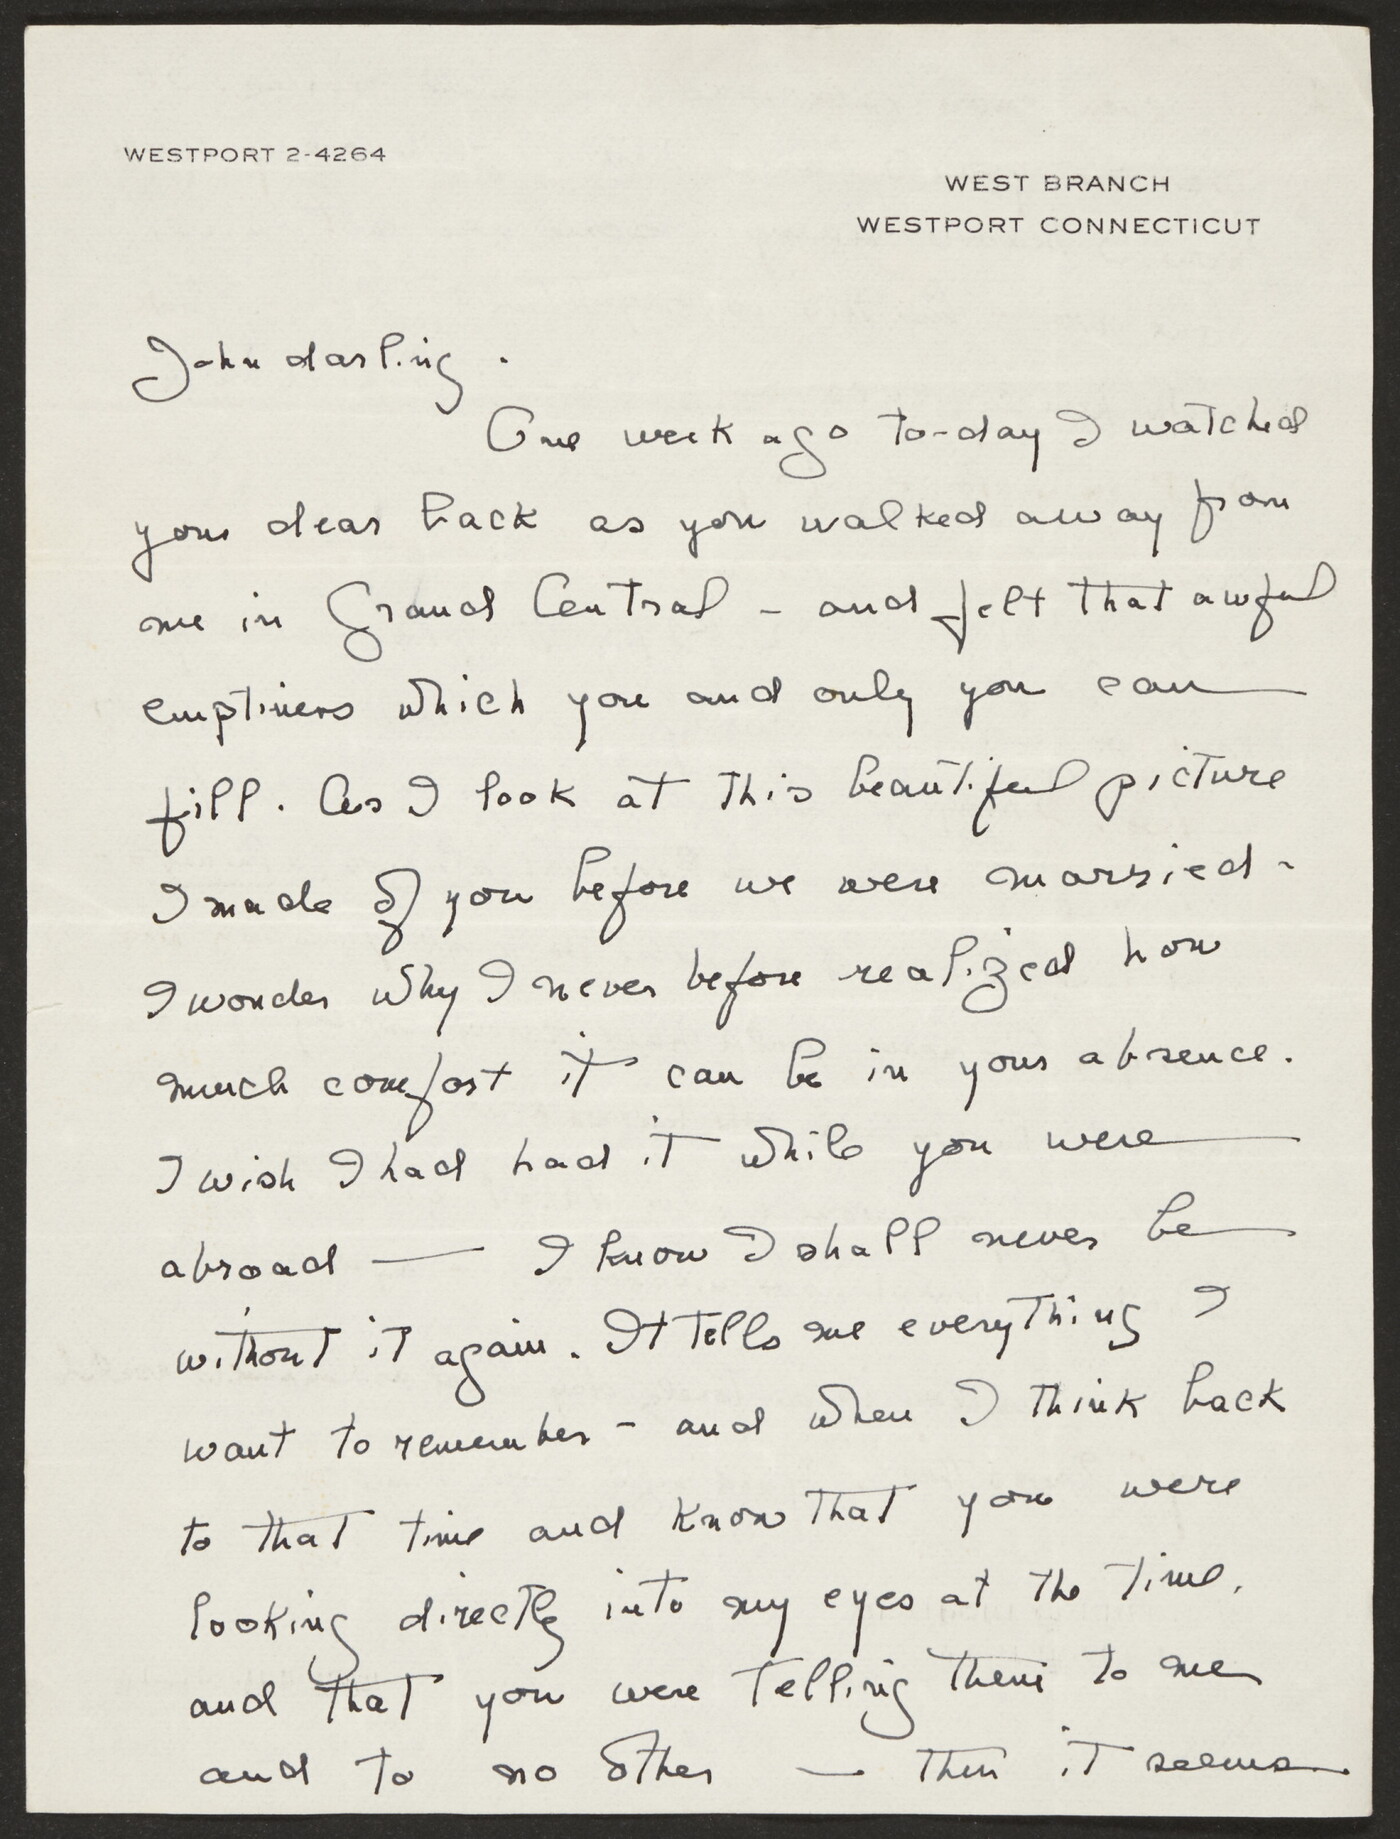 WESTPORT 2-4264
WEST BRANCH
WESTPORT CONNECTICUT
John darling.
One week ago to-day I watched
your dear back as you walked away from
me in Grand Central - and felt that awful
emptiness which you and only you can
fill. As I look at this beautiful picture
I made of you before we were married -
I wonder why I never before realized how
much comfort it can be in your absence.
I wish I had had it while you were
abroad — I know I shall never be
without it again. It tells me everything I
want to remember - and when I think back
to that time and know that you were
looking directly into my eyes at the time,
and that you were telling them to me
and to no other — then it seems